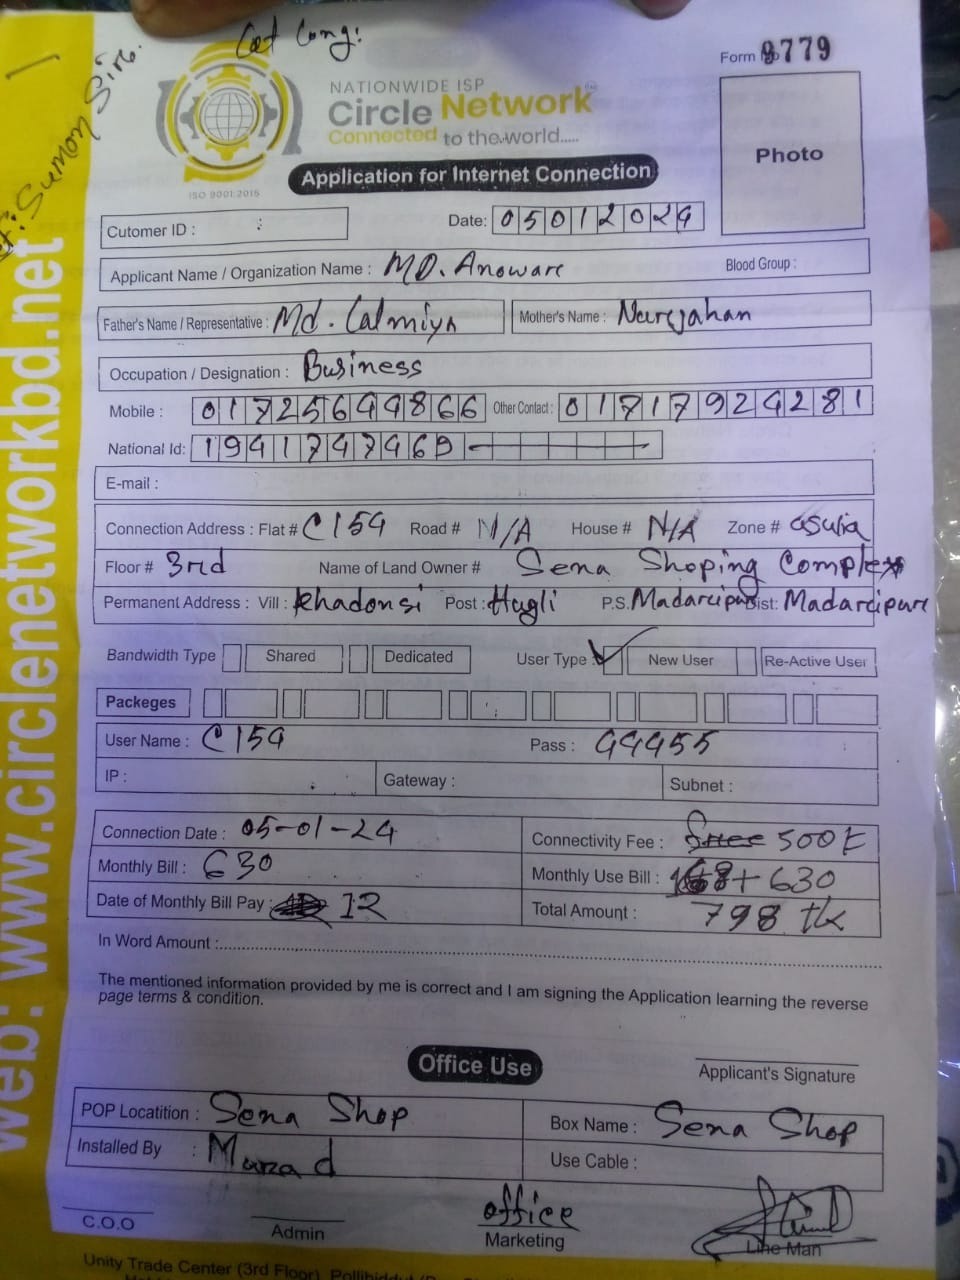 Cat Cong:
Form No 9779
Ref: Sumon Sir.
NATIONWIDE ISP
Circle Network
Connected to the world.....
ISO 9001:2015
Application for Internet Connection
Photo
Cutomer ID :
Date: 05012024
Applicant Name / Organization Name : MD. Anoware
Blood Group :
Father's Name / Representative : Md. Calmiya
Mother's Name : Nurejahan
Occupation / Designation : Business
Mobile : 01725644866 Other Contact : 01717924281
National Id: 1941747469
E-mail :
Connection Address : Flat # C154 Road # N/A House # N/A Zone # asulia
Floor # 3rd Name of Land Owner # Sena Shoping Complex
Permanent Address : Vill : Khadonsi Post : Hugli P.S. Madaripur Dist: Madaripure
Bandwidth Type Shared Dedicated User Type ✓ New User Re-Active User
Packeges
User Name : C154 Pass : 44455
IP : Gateway : Subnet :
Connection Date : 05-01-24 Connectivity Fee : Free 500t
Monthly Bill : 630 Monthly Use Bill : 168+630
Date of Monthly Bill Pay : 12 Total Amount : 798 tk
In Word Amount :
The mentioned information provided by me is correct and I am signing the Application learning the reverse
page terms & condition.
Office Use
Applicant's Signature
POP Locatition : Sena Shop Box Name : Sena Shop
Installed By : Murad Use Cable :
office
C.O.O Admin Marketing Line Man
Unity Trade Center (3rd Floor),
web: www.circlenetworkbd.net